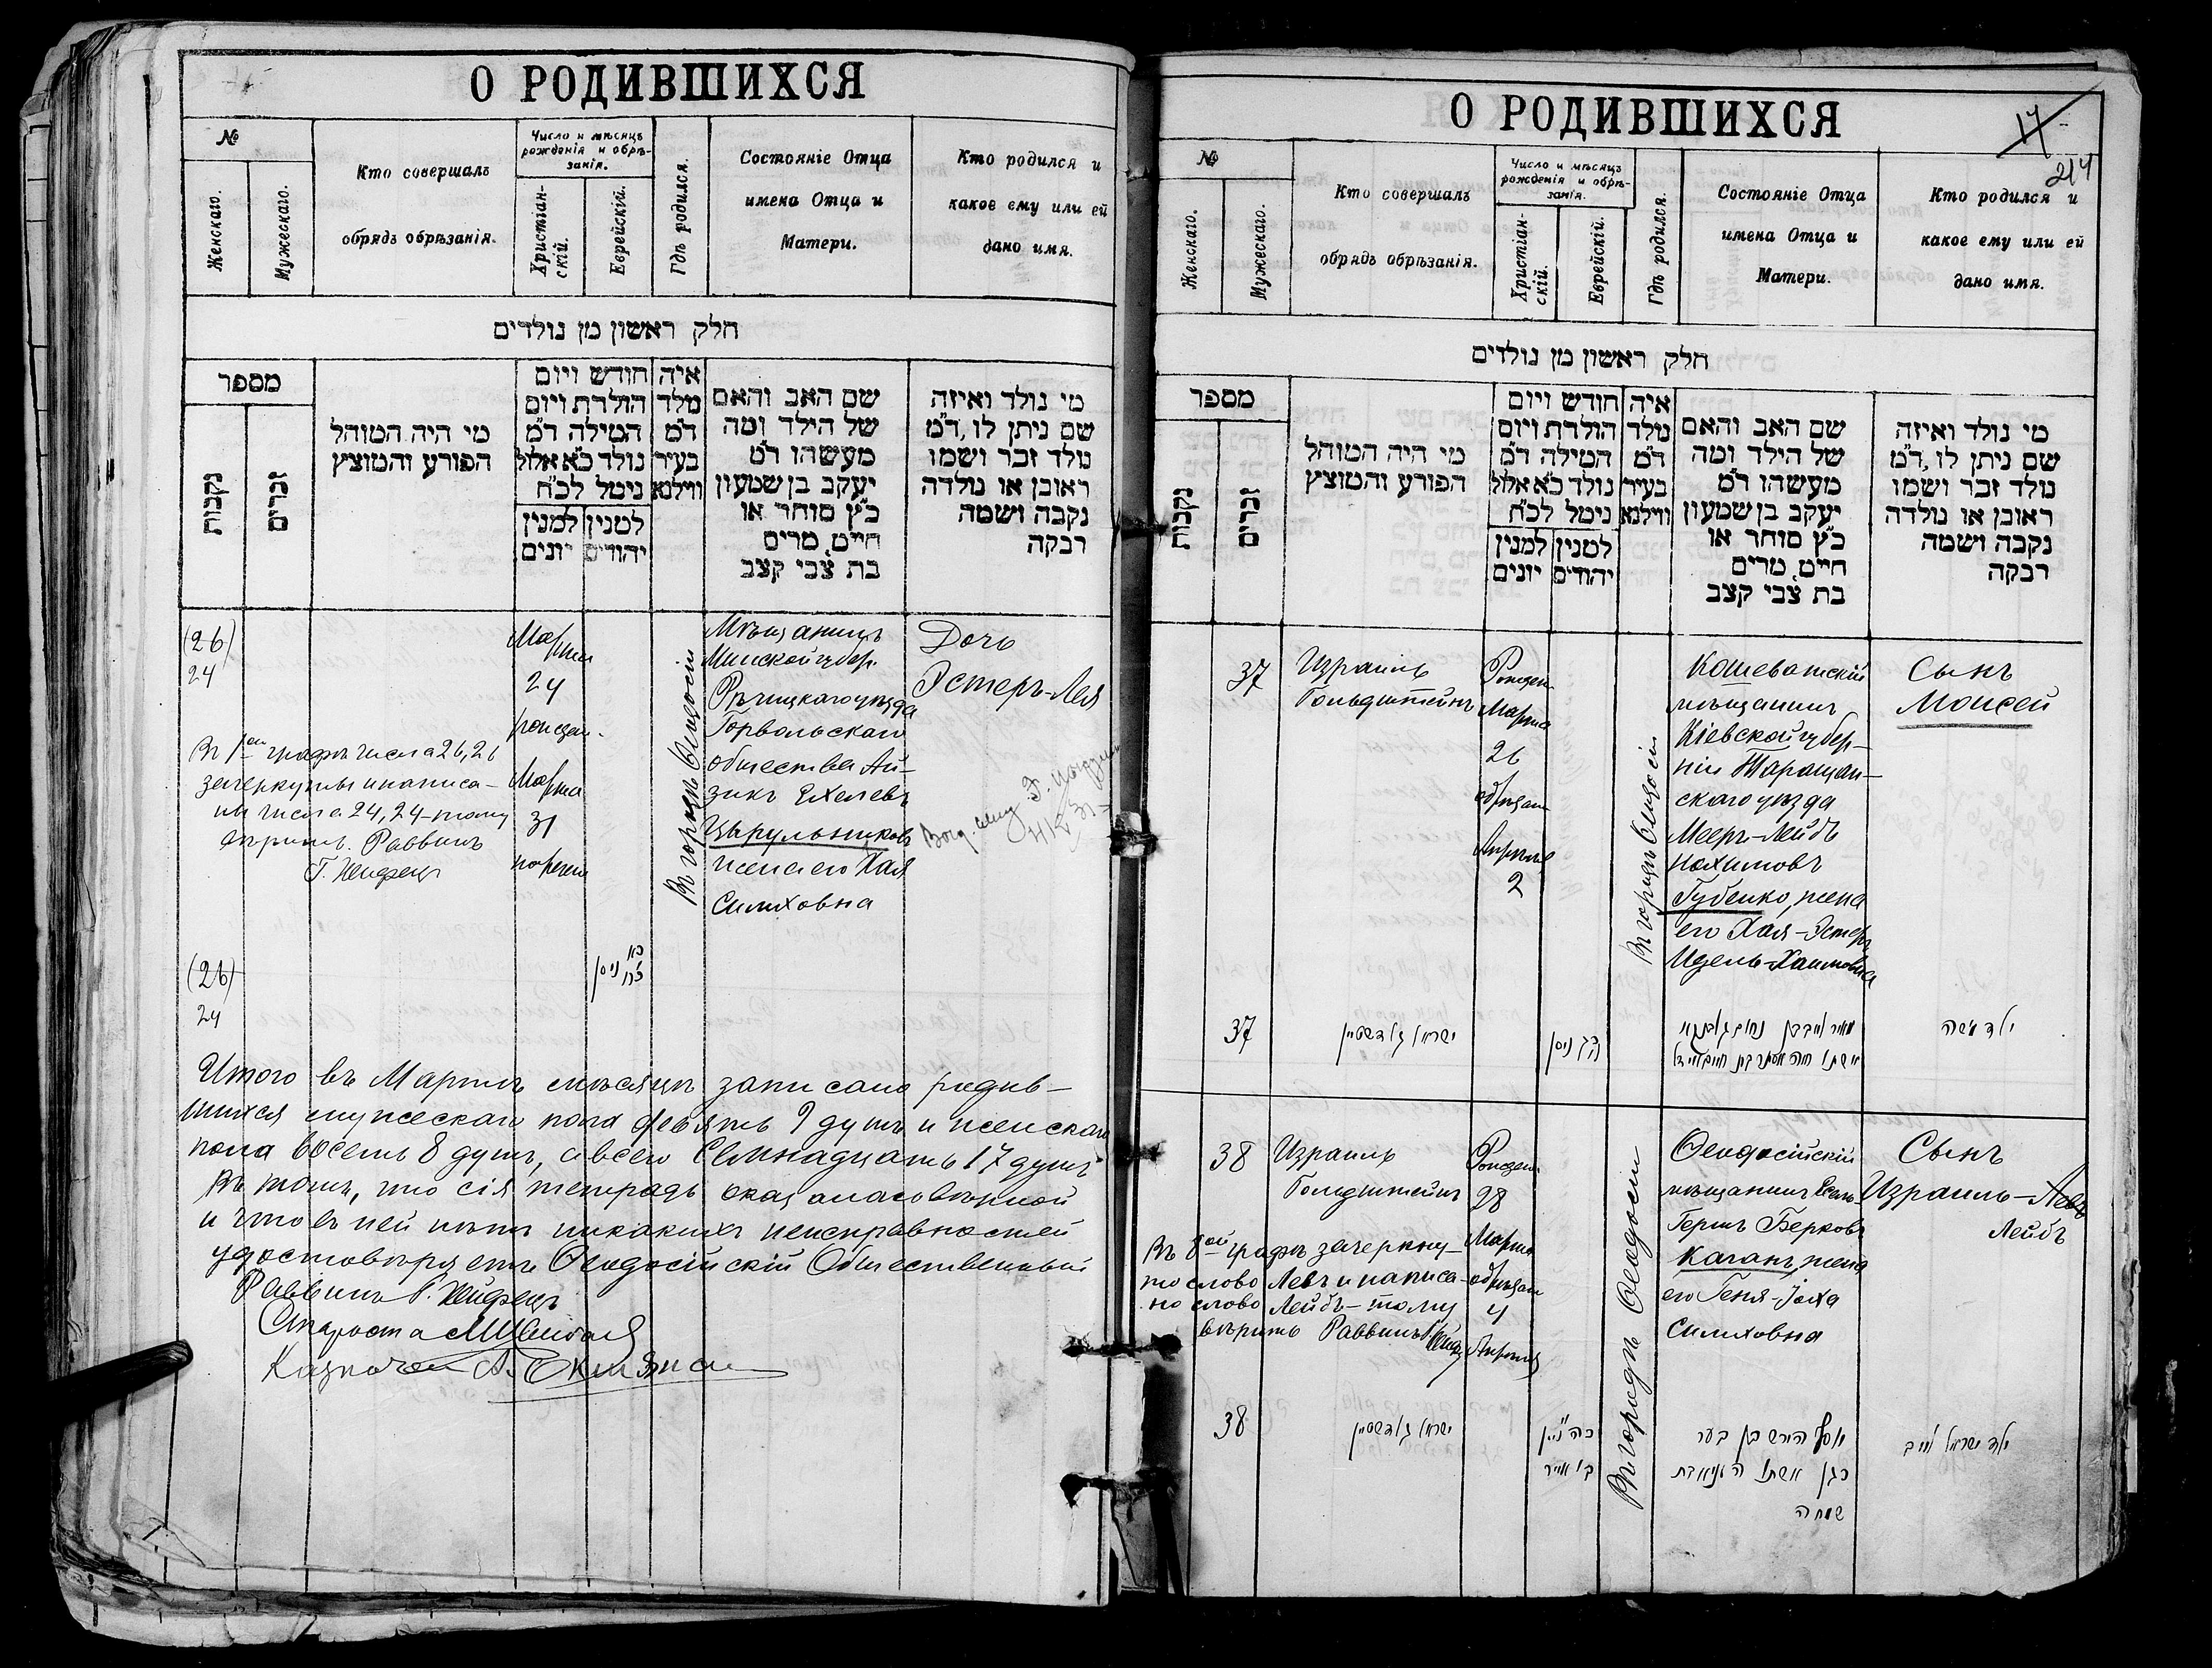 О РОДИВШИХСЯ
№
Женскаго.
Мужескаго.
Кто совершалъ
обрядъ обрѣзанія.
Число и мѣсяцъ
рожденія и обрѣ-
занія.
Христіан-
скій.
Еврейскій.
Гдѣ родился.
Состояніе Отца
имена Отца и
Матери.
Кто родился и
какое ему или ей
дано имя.
חלק ראשון מן נולדים
מספר
נקבות
זכרים
מי היה המוהל
הפורע והמוצץ
חודש ויום
הולדת ויום
המילה ד״מ
נולד כ״א אלול
נימל לכ״ח
למנין
יהודים
למנין
יונים
איה
נולד
ד״מ
בעיר
ווילנא
שם האב והאם
של הילד ומה
מעשהו ד״מ
יעקב בן שמעון
כ״ץ סוחר או
חייט, מרים
בת צבי קצב
מי נולד ואיזה
שם ניתן לו, ד״מ
נולד זכר ושמו
ראובן או נולדה
נקבה ושמה
רבקה
(26)
24
Марта
24
рожден.
Марта
31
наречен
Въ городѣ Ѳеодосіи
Мѣщанинъ
Минской губер.
Рѣчицкаго уѣзда
Горвольскаго
общества Ай-
зикъ Ехелевъ
Цырульниковъ
жена его Хая
Симховна
Дочь
Эстеръ-Лея
Въ 1ой графѣ числа 26, 26
зачеркнуты и написа-
ны числа 24, 24 – тому
вѣрить. Раввинъ
Г. Хейфецъ
(26)
24
כא
כח ניסן
Итого въ Мартѣ мѣсяцѣ записано родив-
шихся мужескаго пола девять 9 душъ и женскаго
пола восемь 8 душъ, а всего семнадцать 17 душъ
Въ томъ, что сія тетрадь оказалась вѣрной
и что въ ней нѣтъ никакихъ неисправностей
удостовѣряетъ Ѳеодосійскій Общественный
Раввинъ Г. Хейфецъ
Староста
Казначей А.
О РОДИВШИХСЯ
17
214
№
Женскаго.
Мужескаго.
Кто совершалъ
обрядъ обрѣзанія.
Число и мѣсяцъ
рожденія и обрѣ-
занія.
Христіан-
скій.
Еврейскій.
Гдѣ родился.
Состояніе Отца
имена Отца и
Матери.
Кто родился и
какое ему или ей
дано имя.
חלק ראשון מן נולדים
מספר
נקבות
זכרים
מי היה המוהל
הפורע והמוצץ
חודש ויום
הולדת ויום
המילה ד״מ
נולד כ״א אלול
נימל לכ״ח
למנין
יהודים
למנין
יונים
איה
נולד
ד״מ
בעיר
ווילנא
שם האב והאם
של הילד ומה
מעשהו ד״מ
יעקב בן שמעון
כ״ץ סוחר או
חייט, מרים
בת צבי קצב
מי נולד ואיזה
שם ניתן לו, ד״מ
נולד זכר ושמו
ראובן או נולדה
נקבה ושמה
רבקה
37
Израиль
Гольдштейнъ
Рожден.
Марта
26
обрѣзан
Апрѣля
2
Въ городѣ Ѳеодосіи
Кошеватскій
мѣщанинъ
Кіевской губер-
ніи Таращан-
скаго уѣзда
Мееръ-Лейбъ
Нахимовъ
Губенко, жена
его Хая-Эстеръ
Идель-Хаимовна
Сынъ
Моисей
37
ישראל גולדשטיין
ניסן
ילד משה
38
Израиль
Гольдштейнъ
Рожден.
28
Марта
обрѣзан
4
Апрѣля
Въ городѣ Ѳеодосіи
Ѳеодосійскій
мѣщанинъ
Гершъ Берковъ
Каганъ, жена
его Геня-
Симховна
Сынъ
Израиль-Левъ
Лейбъ
Въ 8ой графѣ зачеркну-
то слово Левъ и написа-
но слово Лейбъ – тому
вѣрить Раввинъ Г. Хейфецъ
38
ישראל גולדשטיין
כה ניסן
ב׳ אייר
יוסף הירש בן בער
כגן אשתו
שמחה
ילד ישראל לייב